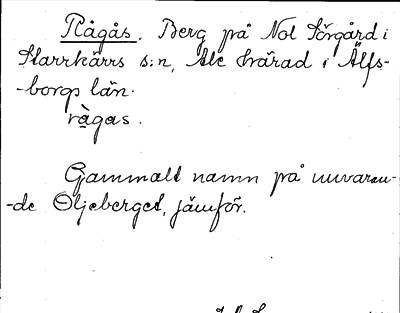 Rågås. Berg på Nol Sörgård i
Starrkärrs s:n, Ale härad i Älfs-
-borgs län.
rågas.
Gammalt namn på nuvaran-
-de Oljeberget, jämför.